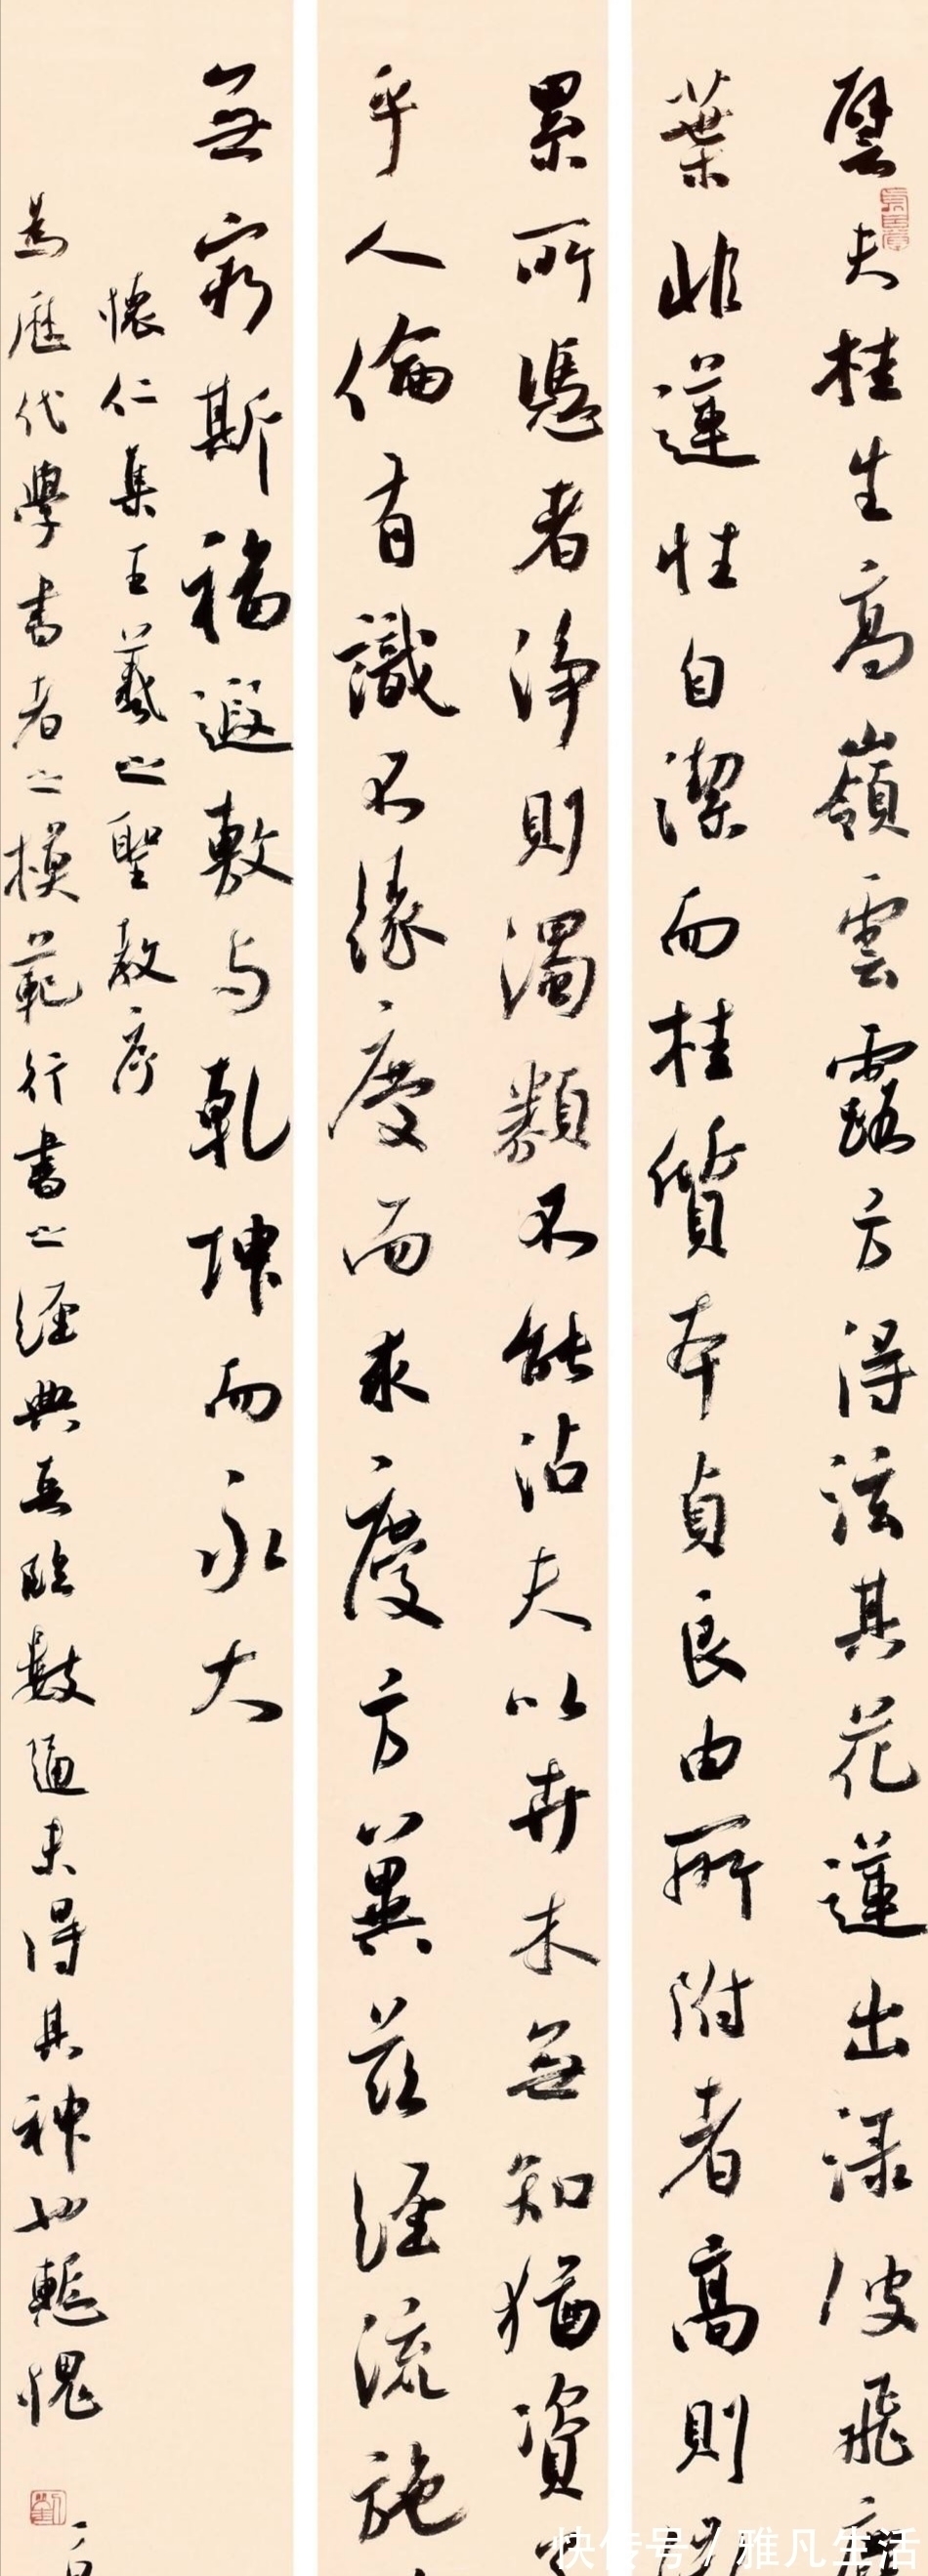 譬夫桂生高嶺雲露方得泫其花蓮出淥波飛
葉非蓮性自潔而桂質本貞良由所附者高則
累所憑者淨則濁類不能沾夫以卉木無知猶資
乎人倫有識不緣慶而求慶方冀茲經流施
無窮斯福遐敷与乾坤而永大
懷仁集王羲之聖教序
為歷代學書者之模範行書之經典吾臨數遍未得其神也慚愧
快传号/雅凡生活